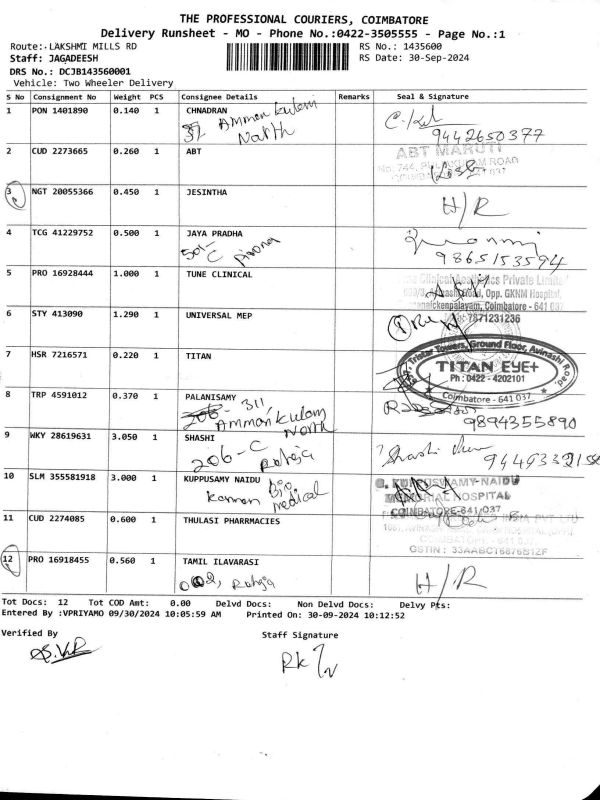 THE PROFESSIONAL COURIERS, COIMBATORE
Delivery Runsheet - MO - Phone No.:0422-3505555 - Page No.:1
Route:. LAKSHMI MILLS RD RS No.: 1435600
Staff: JAGADEESH RS Date: 30-Sep-2024
DRS No.: DCJB143560001
Vehicle: Two Wheeler Delivery
S No Consignment No Weight PCS Consignee Details Remarks Seal & Signature
1 PON 1401890 0.140 1 CHNADRAN
37 Ammankulam
North
9442650377
2 CUD 2273665 0.260 1 ABT
ABT MARUTI
3 NGT 20055366 0.450 1 JESINTHA
H/R
4 TCG 41229752 0.500 1 JAYA PRADHA
501-C
9865153594
5 PRO 16928444 1.000 1 TUNE CLINICAL
Private Limited
Road, Opp. GKNM Hospital,
Coimbatore - 641 037
7871231236
6 STY 413090 1.290 1 UNIVERSAL MEP
7 HSR 7216571 0.220 1 TITAN
Tristar Towers, Ground Floor, Avinashi Road,
TITAN EYE+
Ph : 0422 - 4202101
Coimbatore - 641 037
8 TRP 4591012 0.370 1 PALANISAMY
311
Ammankulam
North
9894355890
9 WKY 28619631 3.050 1 SHASHI
206-C Raheja
10 SLM 355581918 3.000 1 KUPPUSAMY NAIDU
Kannan Bio
medical
HOSPITAL
COIMBATORE-641 037
11 CUD 2274085 0.600 1 THULASI PHARRMACIES
COIMBATORE - 641
12 PRO 16918455 0.560 1 TAMIL ILAVARASI
Raheja
H/R
Tot Docs: 12 Tot COD Amt: 0.00 Delvd Docs: Non Delvd Docs: Delvy Pts:
Entered By :VPRIYAMO 09/30/2024 10:05:59 AM Printed On: 30-09-2024 10:12:52
Verified By Staff Signature